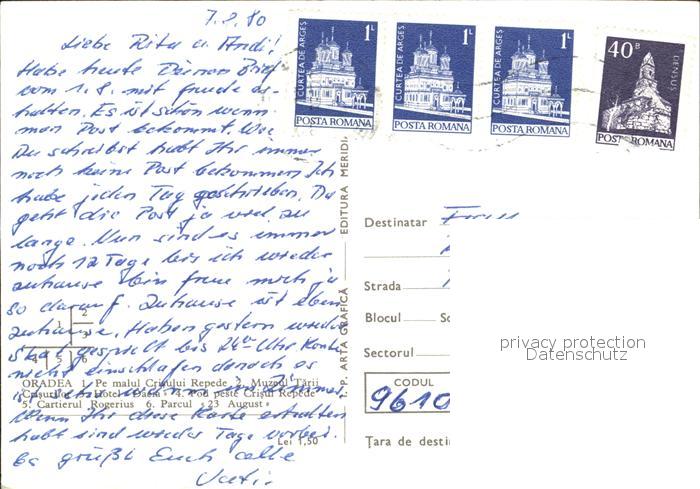 7.8.80
Liebe Rita u. Andi!
Habe heute Deinen Brief
vom 1.8. mit Freude er-
halten. Es ist schön wenn
man Post bekommt. Wie
Du schreibst habt Ihr immer
noch keine Post bekommen. Ich
habe jeden Tag geschrieben. Da
geht die Post ja viel zu
lange. Nun sind es immer
noch 12 Tage bis ich wieder
zuhause bin freue mich ja
so darauf. Zuhause ist eben
zuhause. Haben gestern wieder
gespielt bis 24 Uhr konnte
nicht einschlafen
Wenn Ihr diese Karte erhalten
habt sind wieder Tage vorbei.
Es grüßt Euch alle
1 2 3 4 5 6
ORADEA 1. Pe malul Crișului Repede 2. Muzeul Țării
Crișurilor 4. Pod peste Crișul Repede
5. Cartierul Rogerius 6. Parcul „23 August"
Lei 1,50
I.P. ARTA GRAFICĂ EDITURA MERIDI
CURTEA DE ARGEȘ 1L POSTA ROMANA
CURTEA DE ARGEȘ 1L POSTA ROMANA
CURTEA DE ARGEȘ 1L POSTA ROMANA
40B DENSUS POSTA ROMANA
Destinatar
Strada
Blocul Sc
Sectorul
CODUL
9610
Țara de desti
privacy protection
Datenschutz